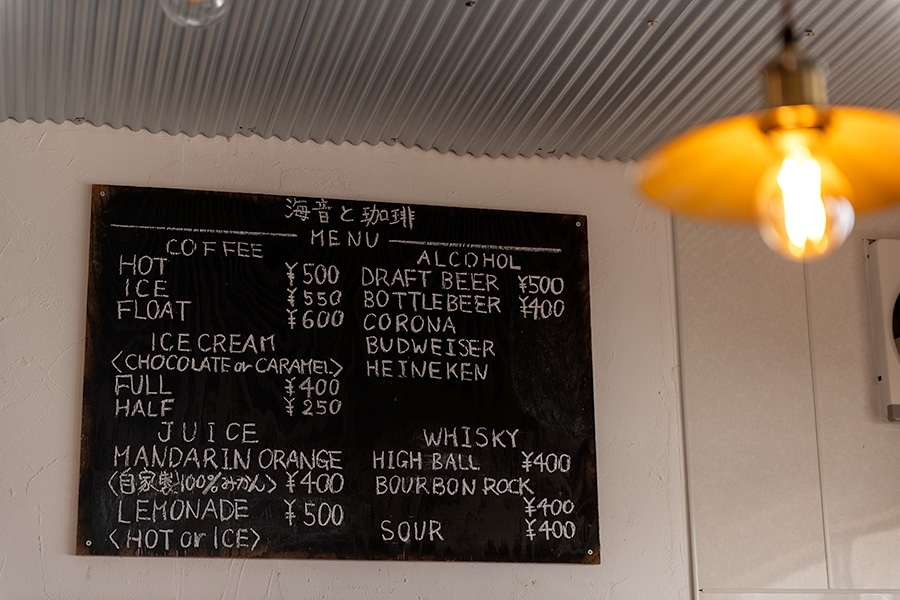 海音と珈琲
MENU
COFFEE
HOT ¥500
ICE ¥550
FLOAT ¥600
ICE CREAM
<CHOCOLATE or CARAMEL>
FULL ¥400
HALF ¥250
JUICE
MANDARIN ORANGE
<自家製100%みかん> ¥400
LEMONADE ¥500
<HOT or ICE>
ALCOHOL
DRAFT BEER ¥500
BOTTLEBEER ¥400
CORONA
BUDWEISER
HEINEKEN
WHISKY
HIGH BALL ¥400
BOURBON ROCK
¥400
SOUR ¥400